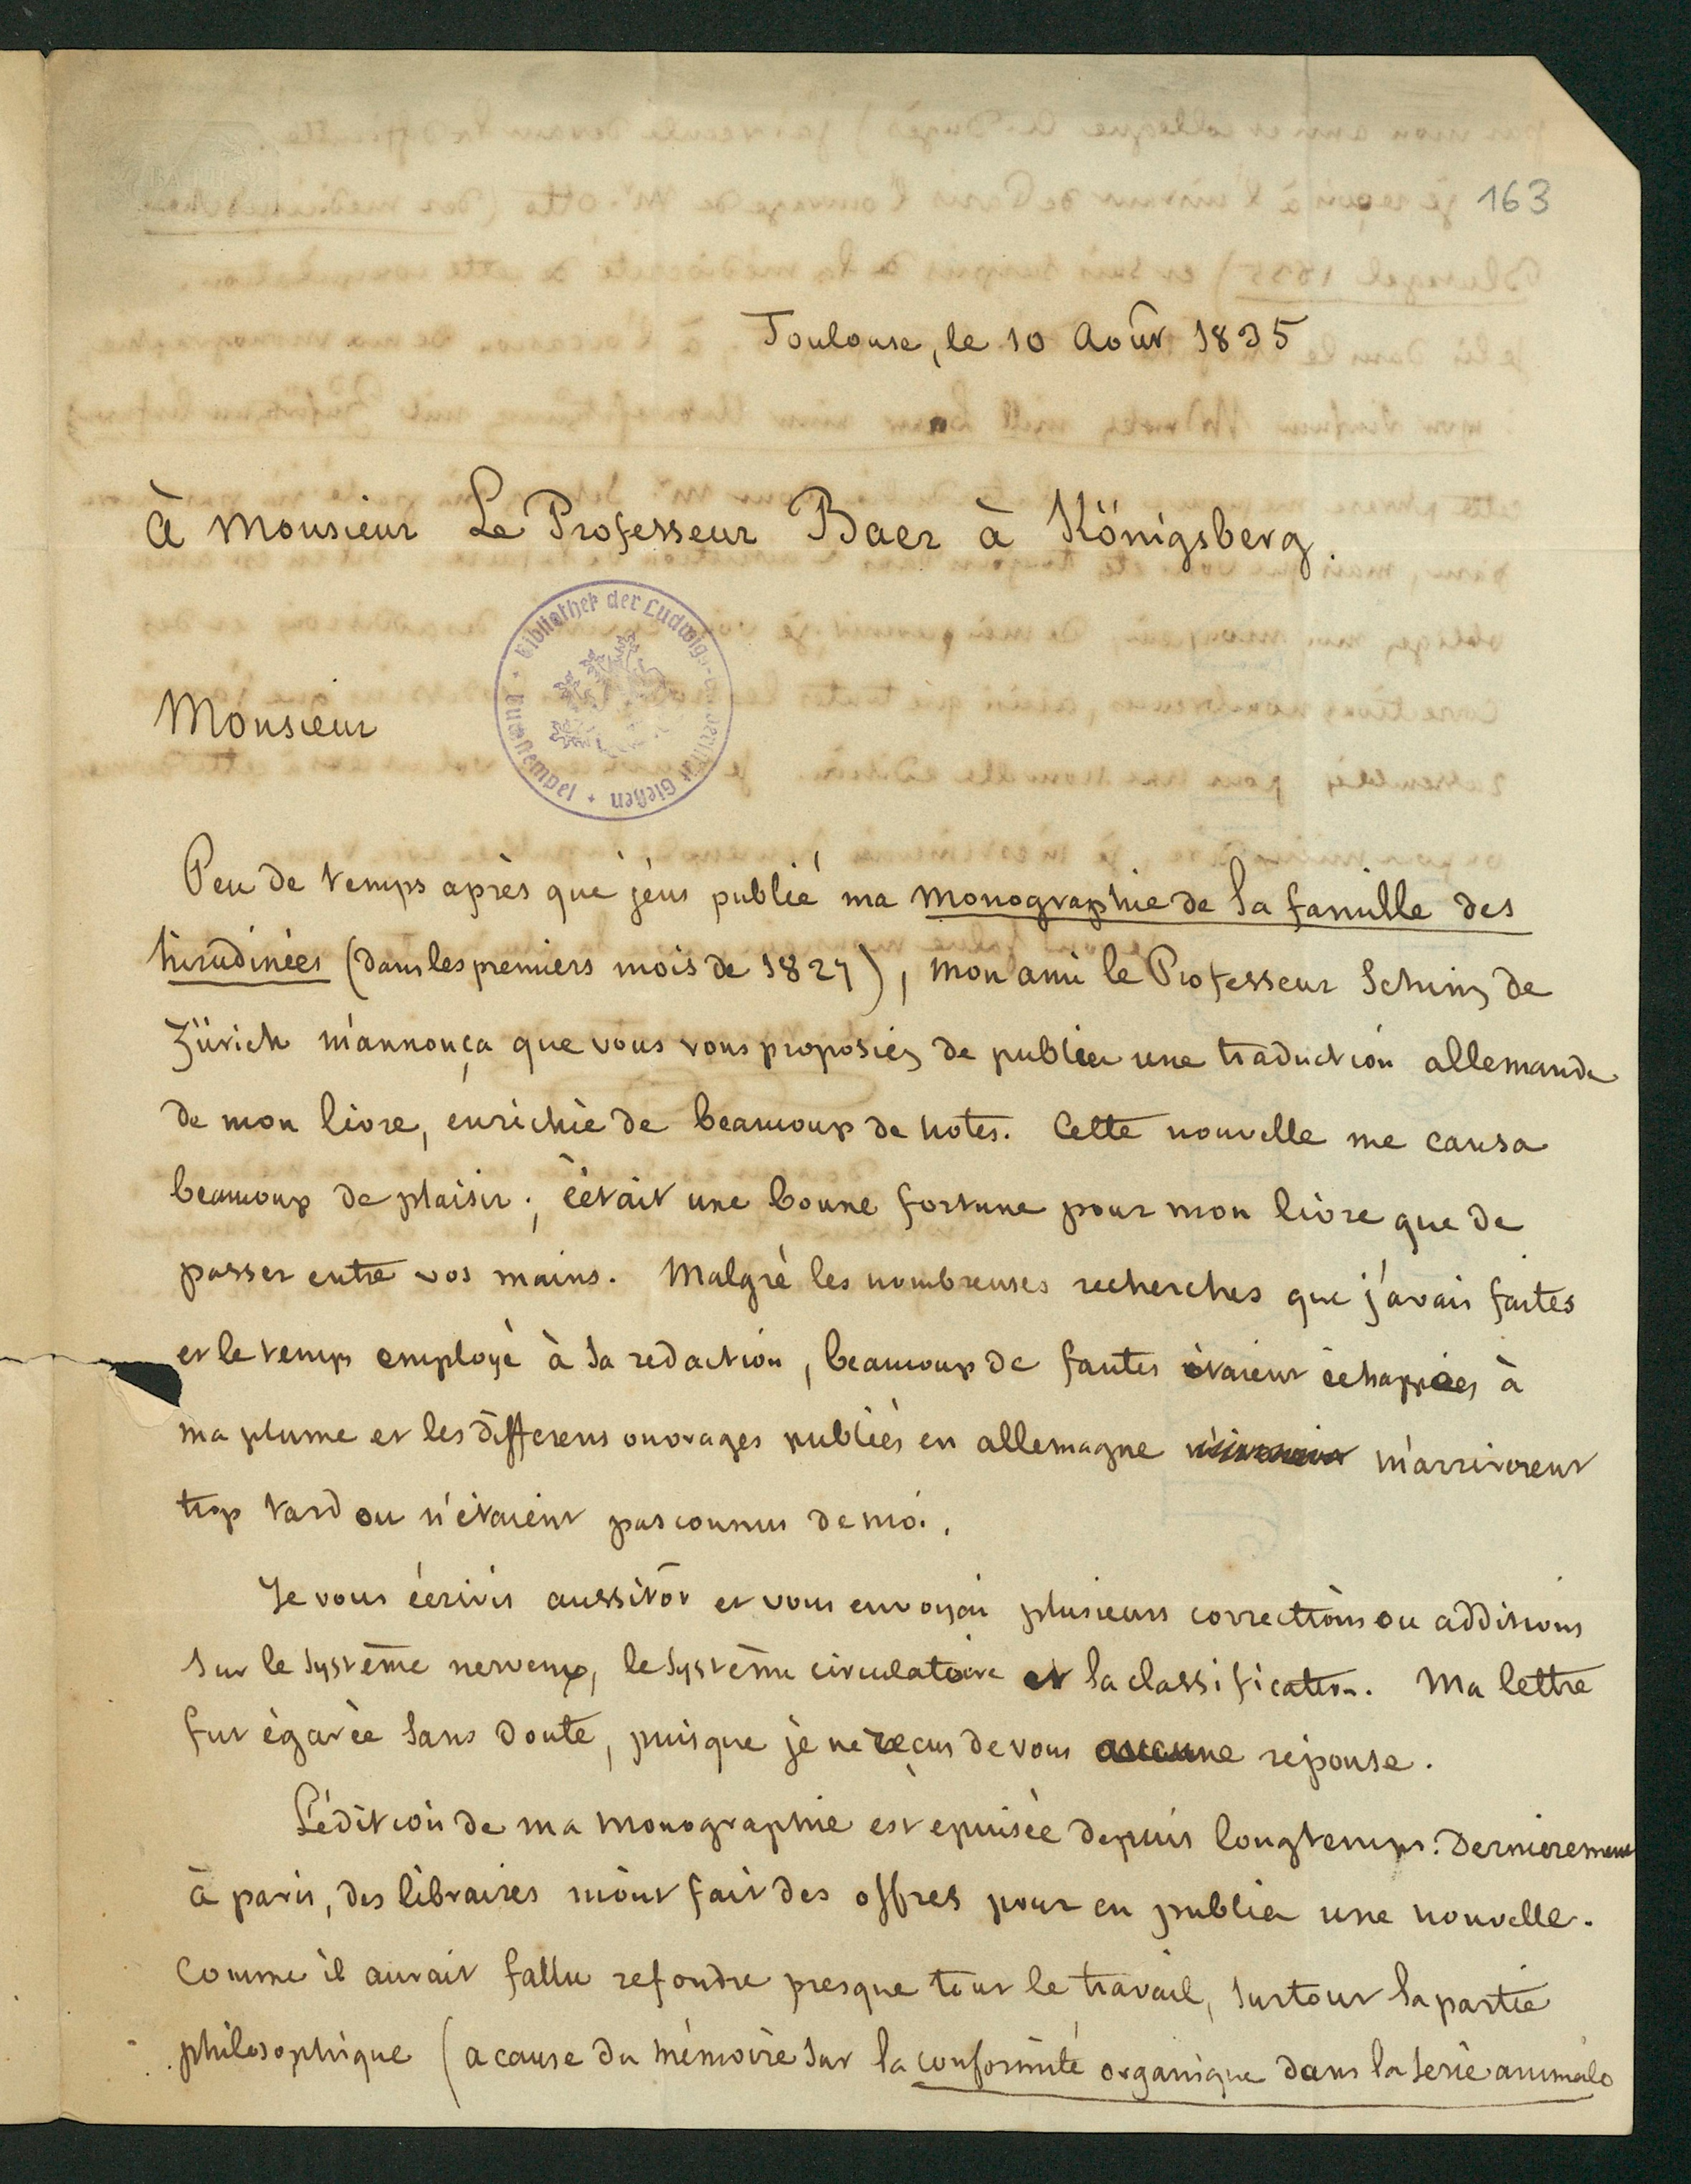 163
Toulouse, le 10 Août 1835
à Monsieur Le Professeur Baer à Königsberg.
Bibliothek der Ludwigs-Universität Gießen
Monsieur
Peu de temps après que j'eus publié ma monographie de la famille des
hirudinées (dans les premiers mois de 1827), mon ami le Professeur Schinz de
Zürich m'annonça que vous vous proposiez de publier une traduction allemande
de mon livre, enrichie de beaucoup de notes. Cette nouvelle me causa
beaucoup de plaisir; c'était une bonne fortune pour mon livre que de
passer entre vos mains. Malgré les nombreuses recherches que j'avais faites
et le temps employé à sa redaction, beaucoup de fautes étaient échappées à
ma plume et les differens ouvrages publiés en allemagne m'arriverent
trop tard ou n'étaient pas connus de moi.
Je vous écrivis aussitôt et vous envoyai plusieurs corrections ou additions
sur le système nerveux, le système circulatoire et la classification. Ma lettre
fut égarée sans doute, puisque je ne reçus de vous aucune réponse.
L'édition de ma monographie est epuisée depuis longtemps. Dernierement
à paris, des libraires m'ont fait des offres pour en publier une nouvelle.
Comme il aurait fallu refondre presque tout le travail, surtout la partie
philosophique (a cause du mémoire sur la conformité organique dans la serie animale